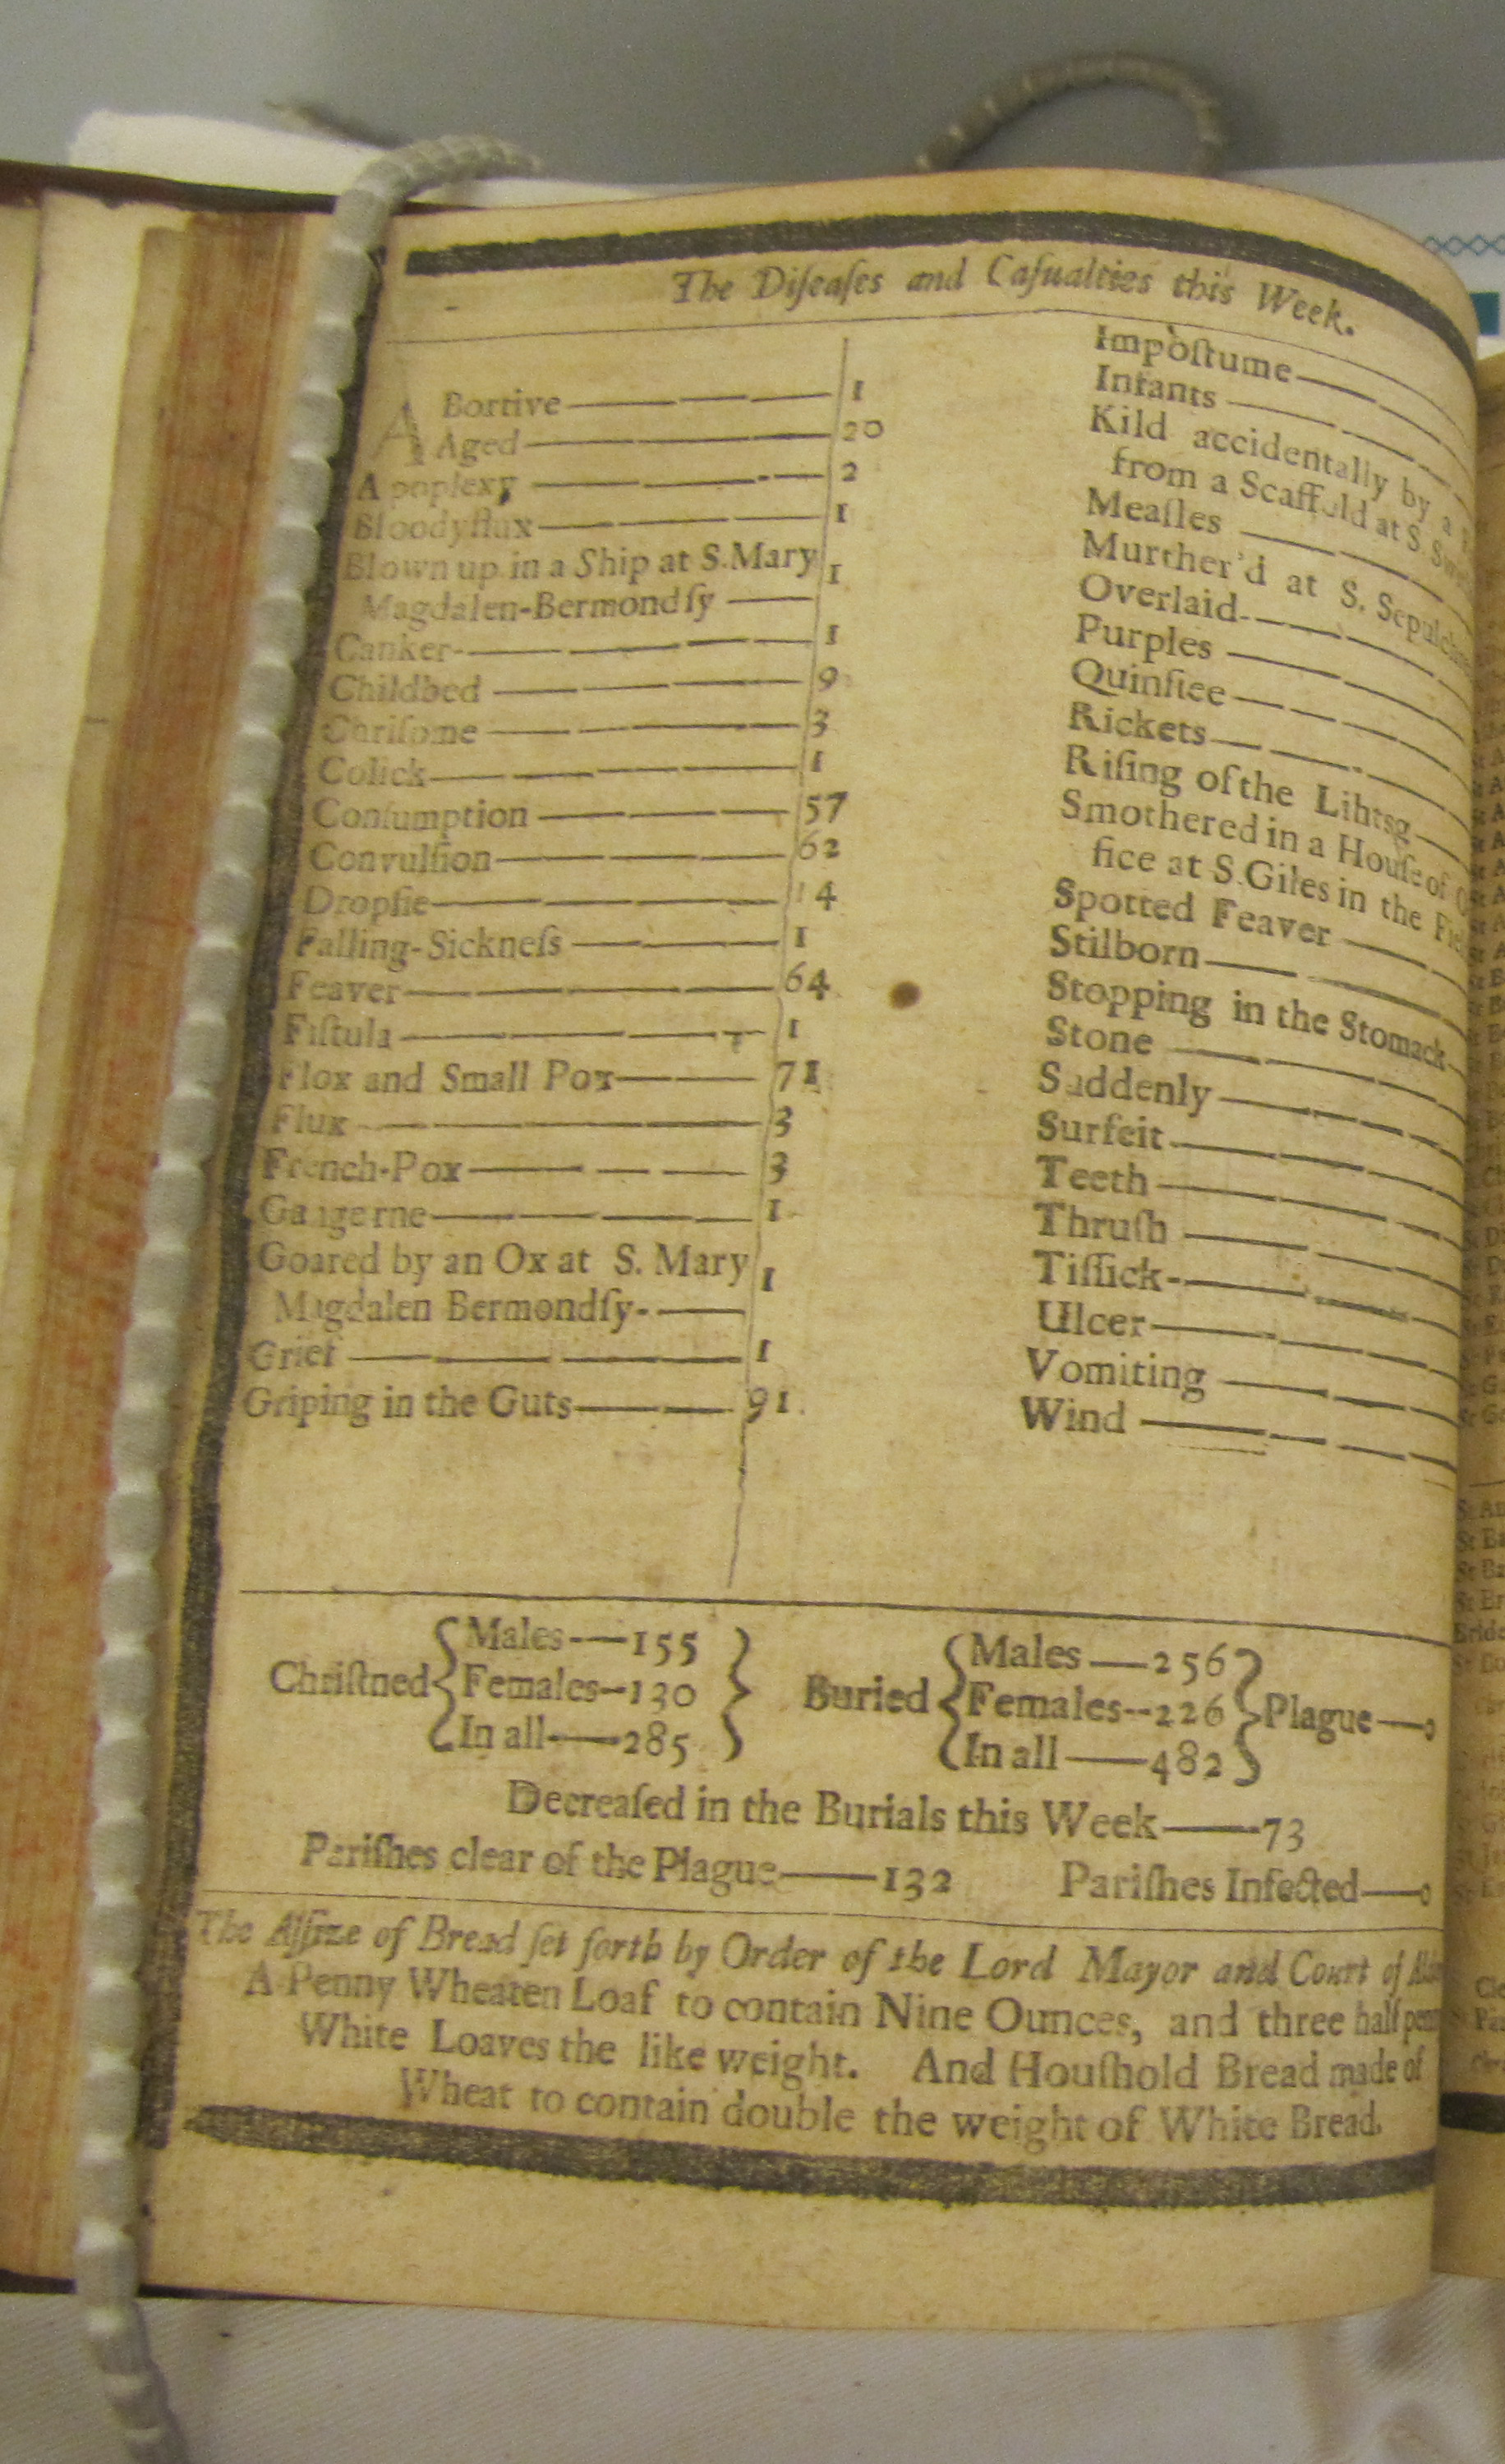 The Diſeaſes and Caſualties this Week.
ABortive 1
Aged 20
Apoplexy 2
Bloodyflux 1
Blown up in a Ship at S. Mary
Magdalen-Bermondſy 1
Canker 1
Childbed 9
Chriſome 3
Colick 1
Conſumption 57
Convulſion 62
Dropſie 14
Falling-Sickneſs 1
Feaver 64
Fiſtula 1
Flox and Small Pox 71
Flux 3
French-Pox 3
Gangerne 1
Goared by an Ox at S. Mary
Magdalen Bermondſy 1
Grief 1
Griping in the Guts 91
Impoſtume
Infants
Kild accidentally by a
from a Scaffold at S.
Meaſles
Murther'd at S. Sepulchres
Overlaid
Purples
Quinſiee
Rickets
Riſing of the Lihtsg
Smothered in a Houſe of
fice at S. Giles in the
Spotted Feaver
Stilborn
Stopping in the Stomack
Stone
Suddenly
Surfeit
Teeth
Thruſh
Tiſſick
Ulcer
Vomiting
Wind
Chriſtned { Males 155 Females 130 In all 285 }
Buried { Males 256 Females 226 In all 482 } Plague 0
Decreaſed in the Burials this Week 73
Pariſhes clear of the Plague 132 Pariſhes Infected 0
The Aſſize of Bread ſet forth by Order of the Lord Mayor and Court of
A Penny Wheaten Loaf to contain Nine Ounces, and three half
White Loaves the like weight. And Houſhold Bread made of
Wheat to contain double the weight of White Bread.